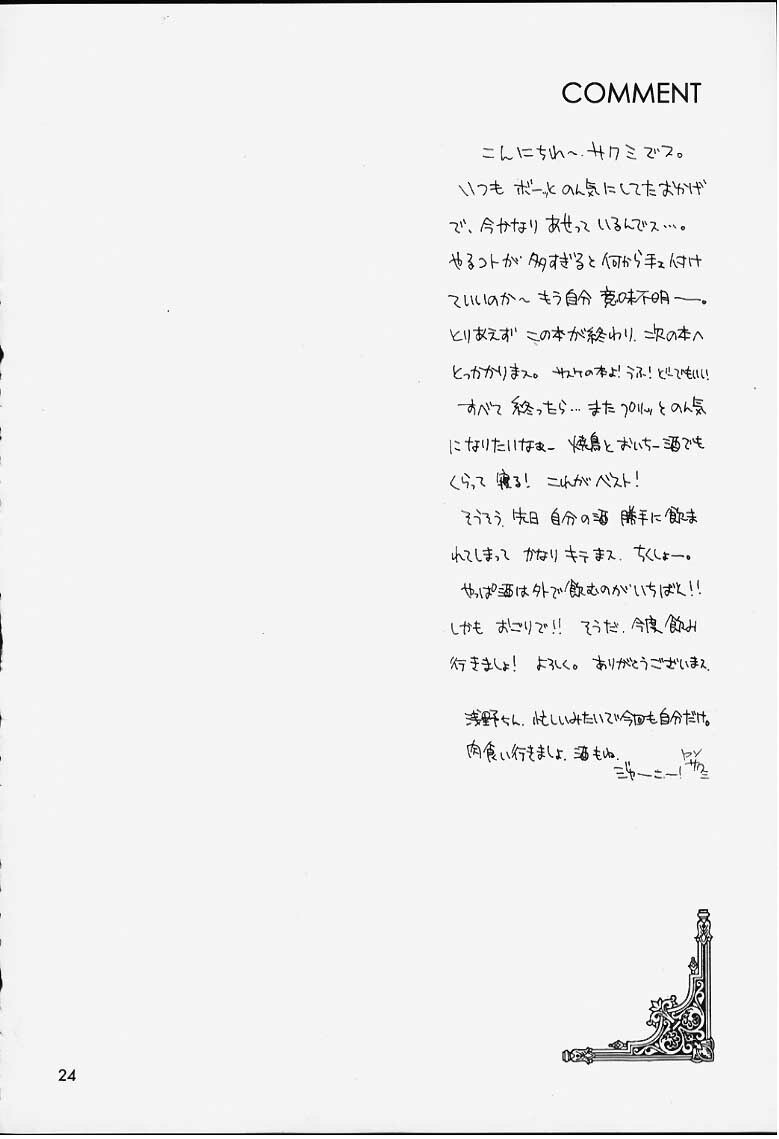 COMMENT
こんにちわ〜.サクミでス。
いつも ボーッと のん気にしてたおかげ
で、今かなり あせって いるんでス…。
やるコトが 多すぎると 何から手を付け
ていいのか〜 もう自分 意味不明ー。
とりあえず この本が終わり. 次の本へ
とっかかりまス。 サスケの本よ!うふ!どーでもいい
すべて 終ったら… また フロリッと のん気
になりたいなぁー 焼鳥と おいちー酒でも
くらって 寝る! これが ベスト!
そうそう. 先日 自分の酒 勝手に飲ま
れてしまって かなり キテ まス. ちくしょー。
やっぱ酒は外で飲むのがいちばん!!
しかも おごりで!! そうだ. 今度飲み
行きましょ! よろしく。 ありがとうございまス.
浅野ちん. 忙しいみたいで今回も自分だけ。
肉食い行きましょ. 酒もね.
サクミ
24